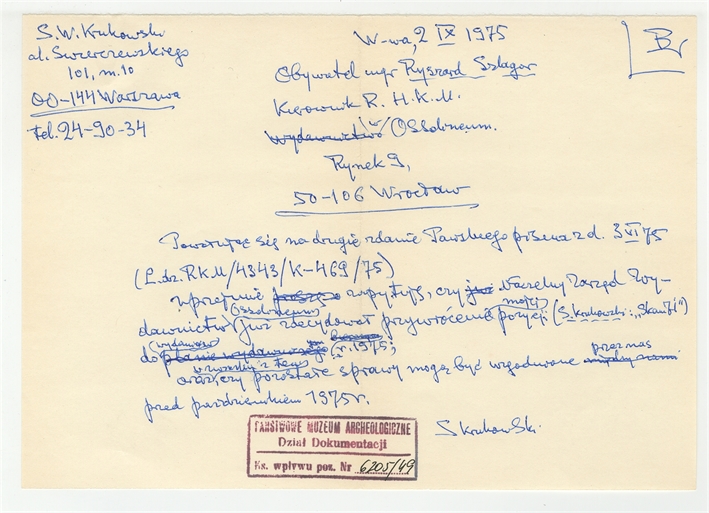 S. W. Krukowski
al. Świerczewskiego
101, m. 10
00-144 Warszawa
tel. 24-90-34
W-wa, 2 IX 1975
B
Obywatel mgr Ryszard
Kierownik R. H. K. M.
Wydawnictwo w Ossolineum.
Rynek 9,
50-106 Wrocław
Powołując się na drugie zdanie Pańskiego pisma z d. 3 VI 75
(L.dz. RKM/4343/K-469/75)
uprzejmie proszę zapytuję, czy Naczelny Zarząd Wy-
Ossolineum mojej
dawnictw już zdecydował przywrócenie pozycji (S. Krukowski: „Skam 71")
do planu wydawniczego r. 1975;
w związku z tem przez nas
oraz czy pozostałe sprawy mogą być uzgodnione między nami
przed październikiem 1975 r.
S Krukowski.
PAŃSTWOWE MUZEUM ARCHEOLOGICZNE
Dział Dokumentacji
Ks. wpływu poz. Nr 6205/49